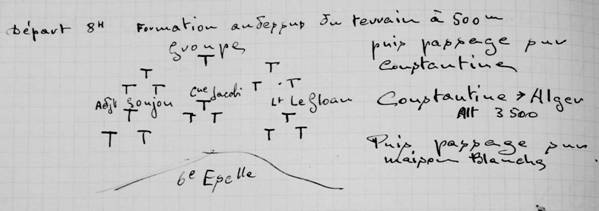 Départ 8H Formation au dessus du terrain à 500m
Groupe
puis passage sur
Constantine
Adjt Goujon
Cne Jacobi
Lt Le Gloan
Constantine → Alger
Alt 3500
Puis passage sur
maison Blanche
6e Escelle